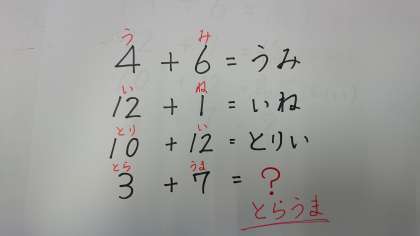 う み
4 + 6 = うみ
い ね
12 + 1 = いね
とり い
10 + 12 = とりい
とら うま
3 + 7 = ?
とらうま